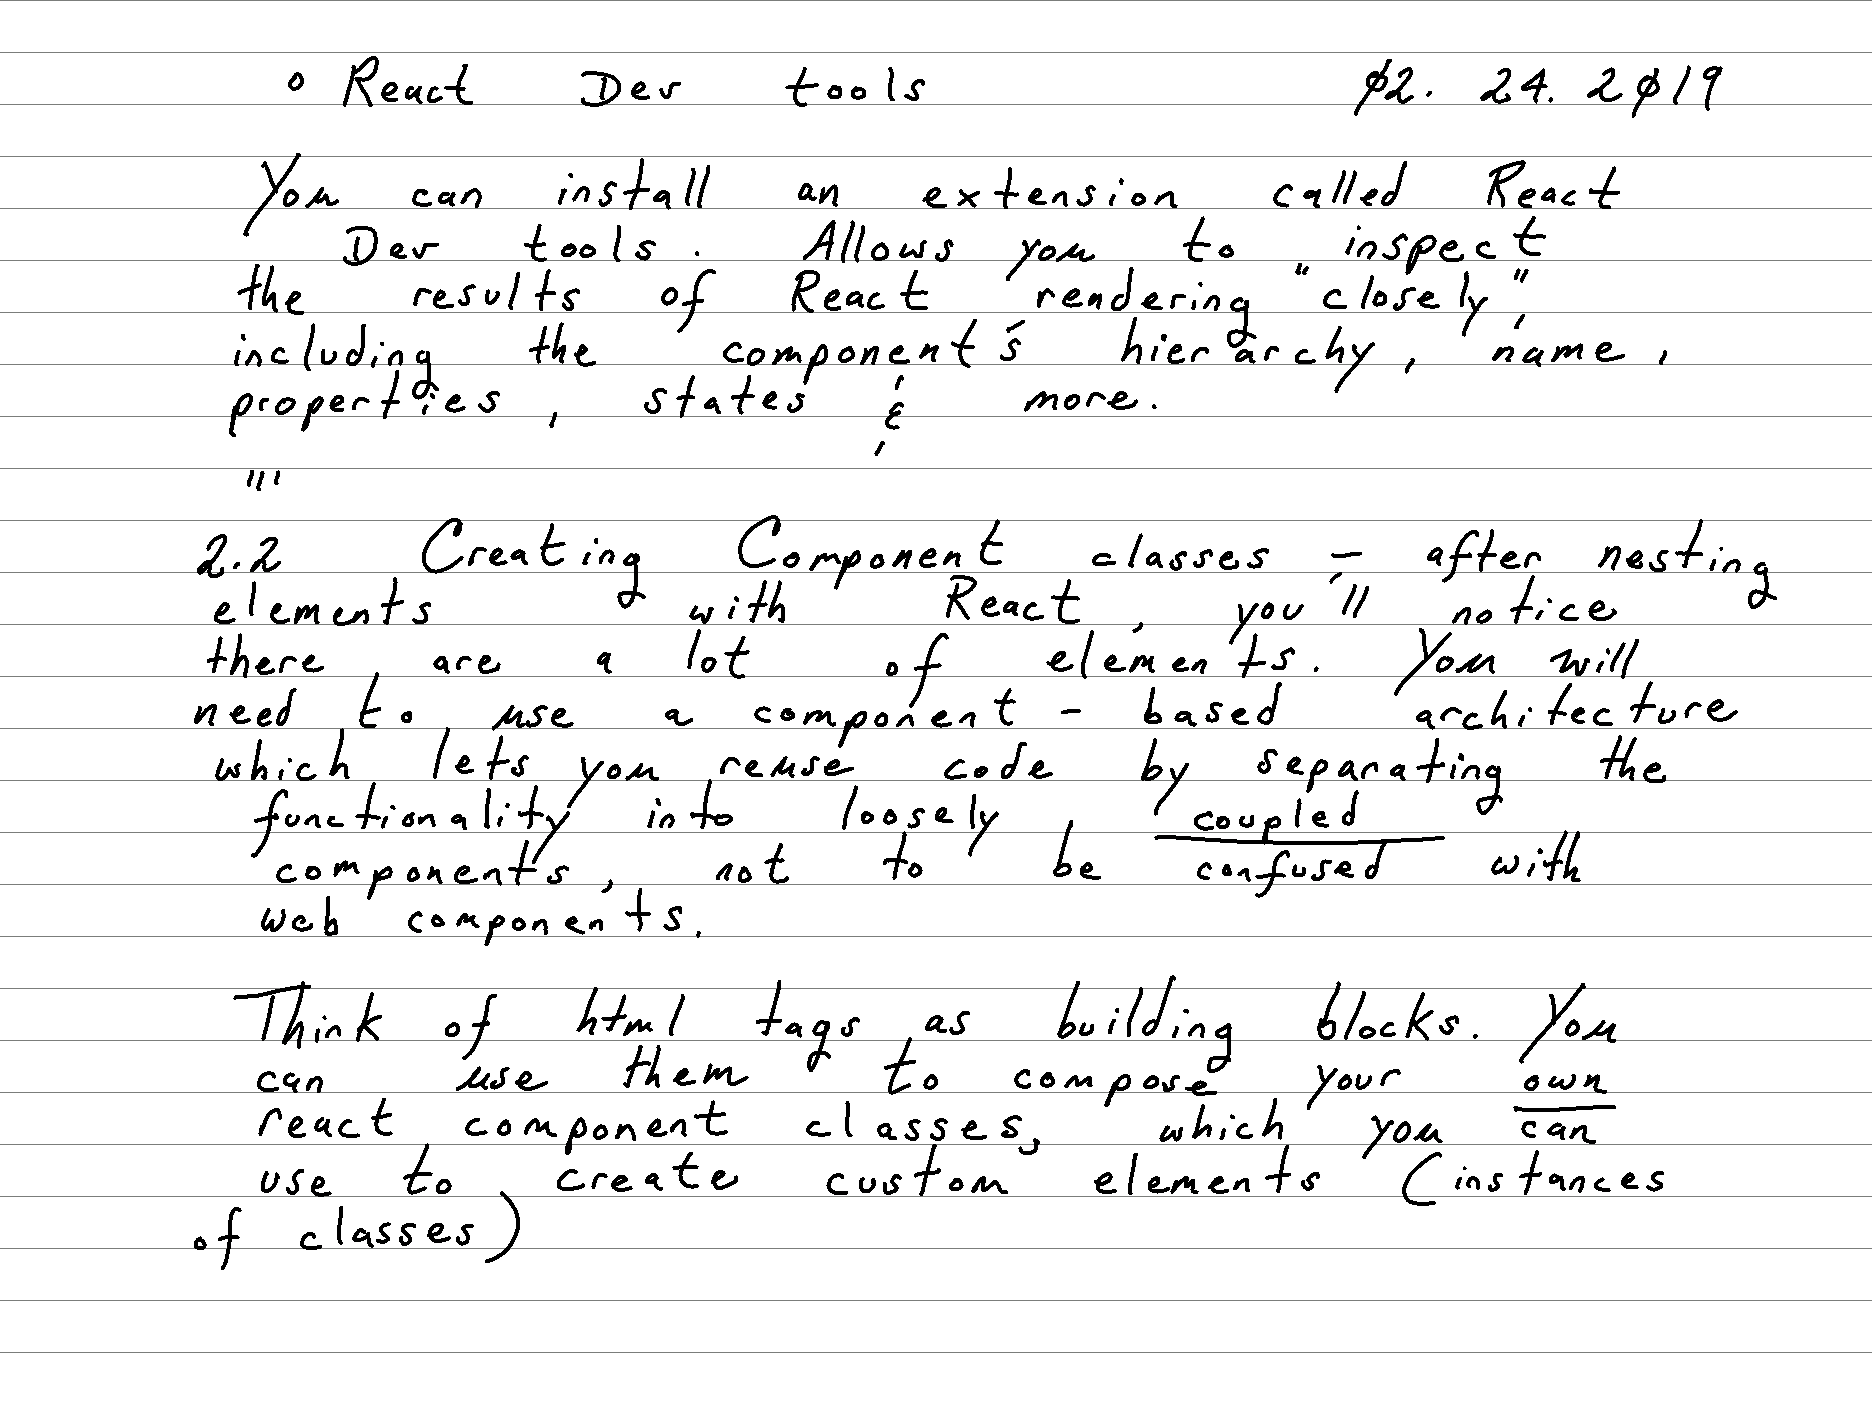 ° React Dev tools 02. 24. 2019
You can install an extension called React
Dev tools. Allows you to inspect
the results of React rendering "closely",
including the component's hierarchy, name,
properties, states & more.
'''
2.2 Creating Component classes - after nesting
elements with React, you'll notice
there are a lot of elements. You will
need to use a component-based architecture
which lets you reuse code by separating the
functionality into loosely coupled
components, not to be confused with
web components.
Think of html tags as building blocks. You
can use them to compose your own
react component classes, which you can
use to create custom elements (instances
of classes)